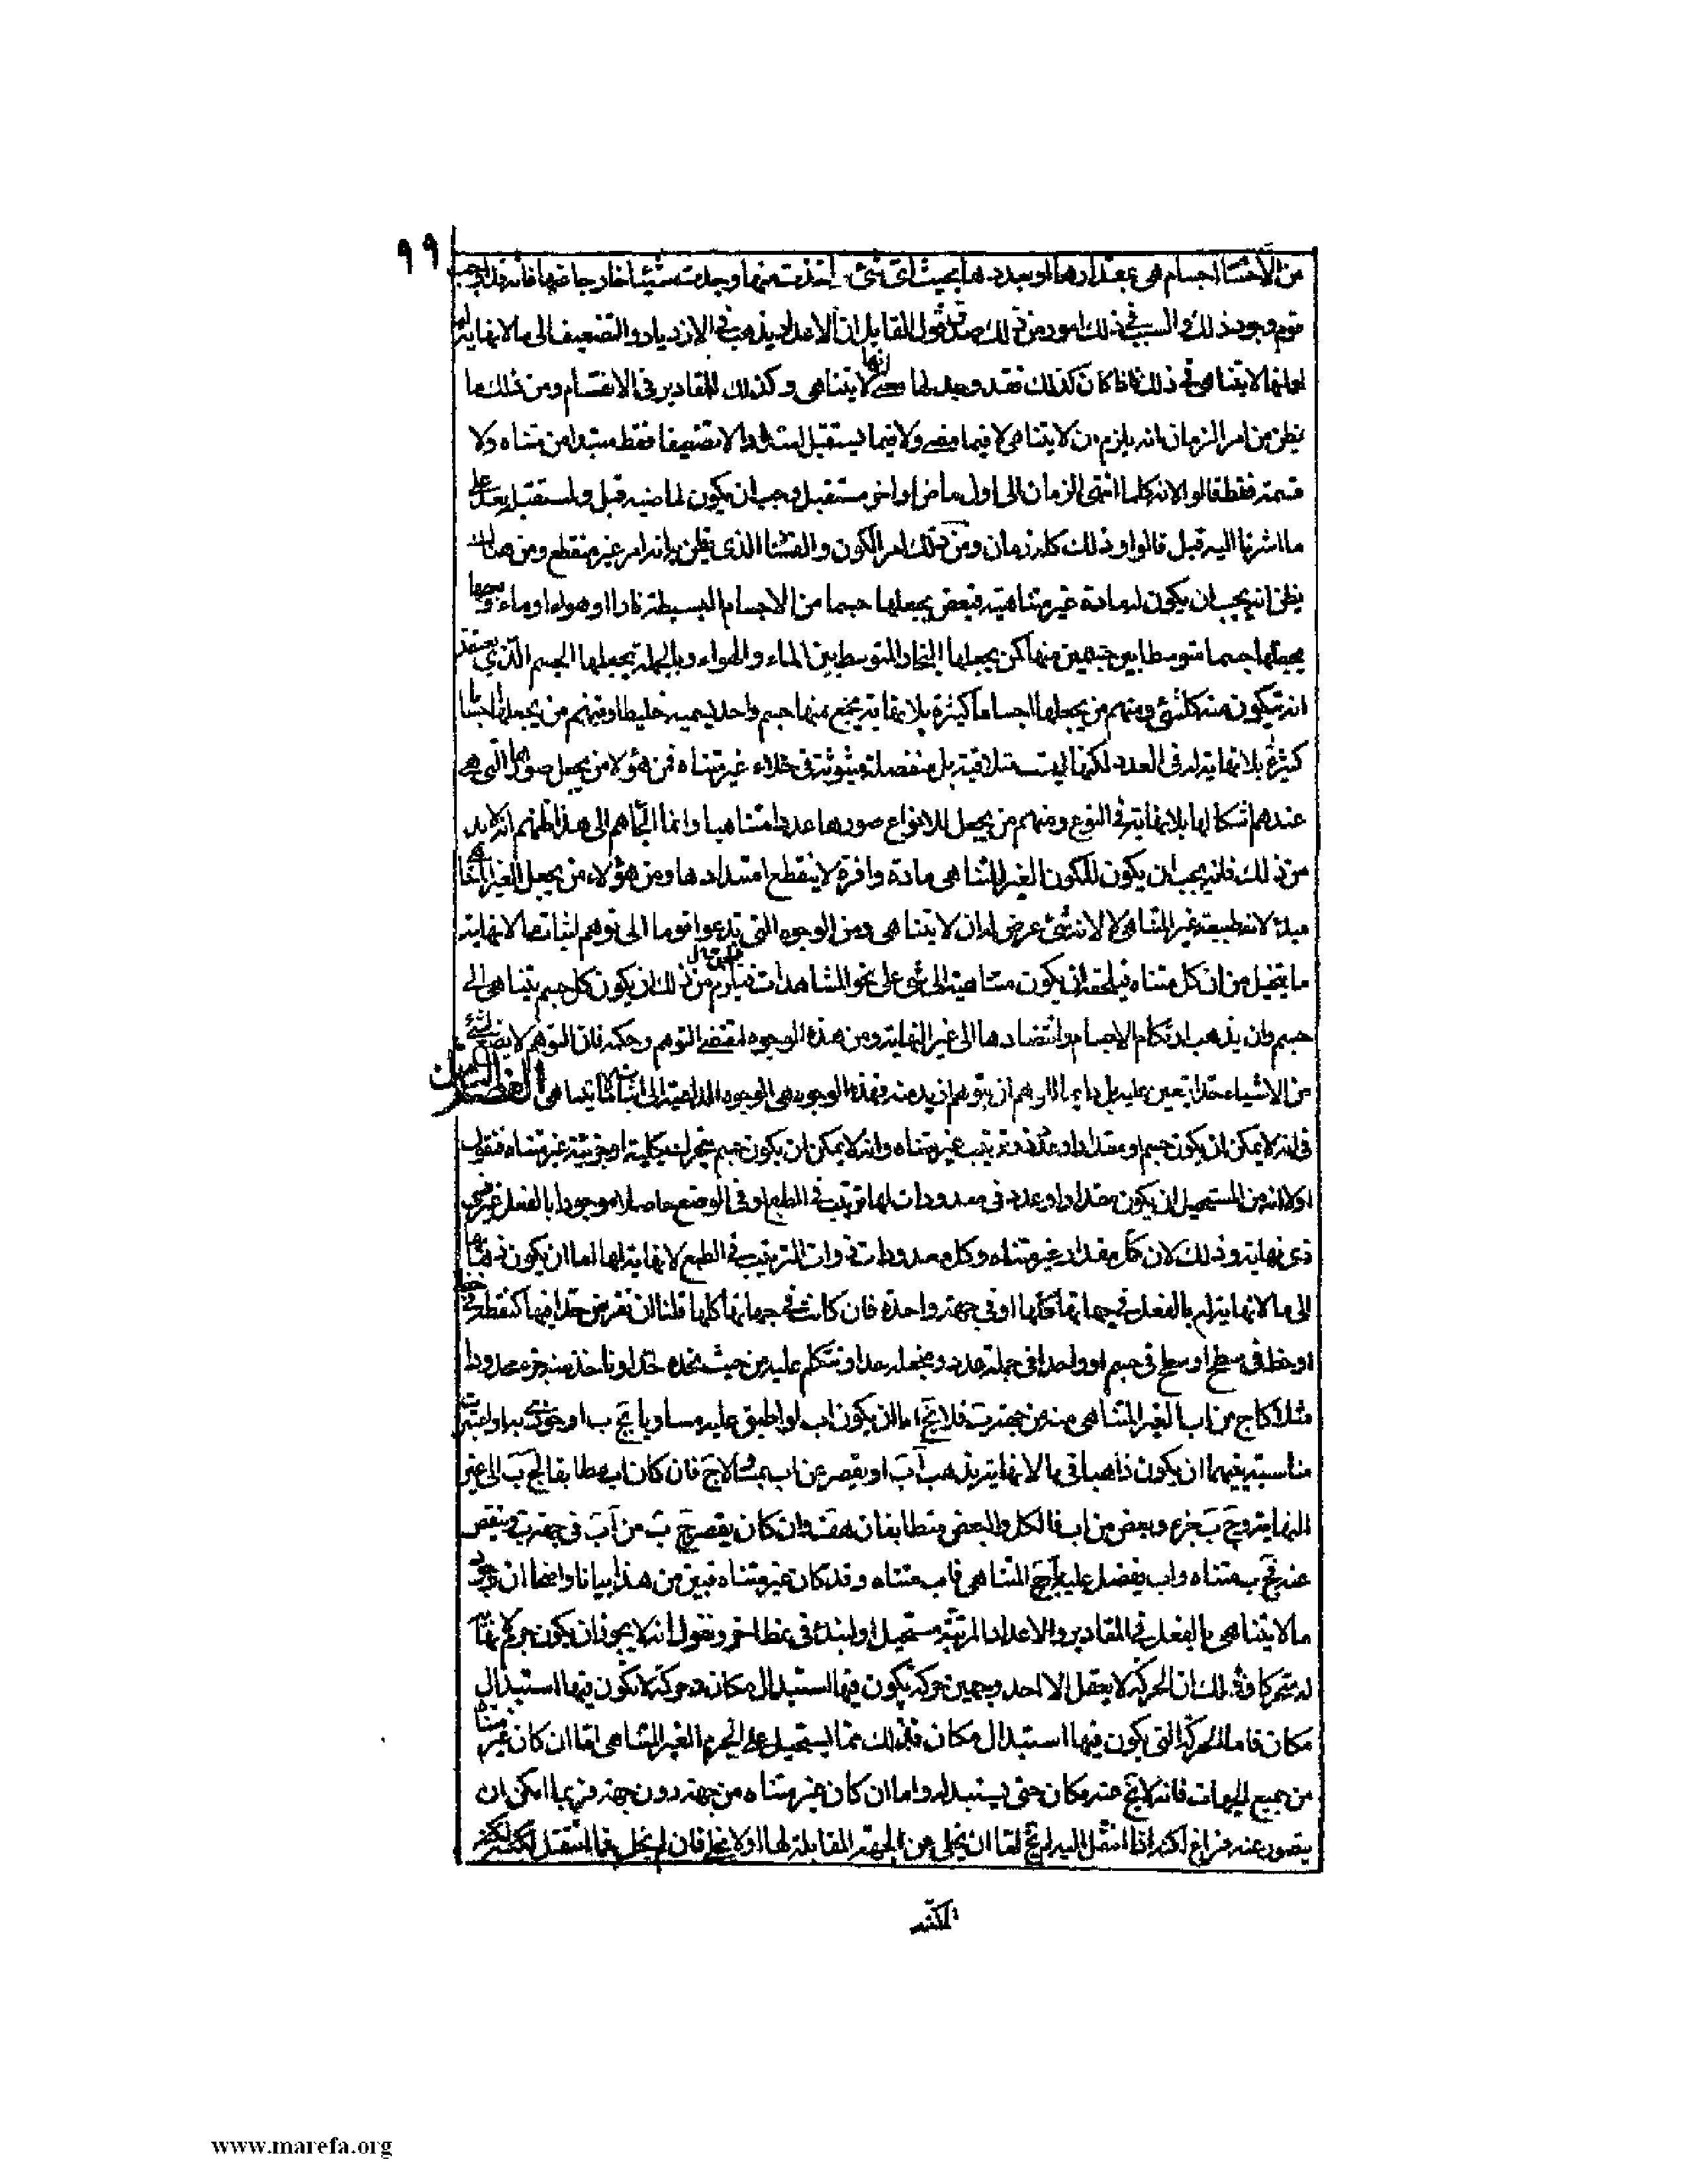 ٩٩
من الاجسام اجسام هى بمقدارها او بعددها بحيث اى شئ اخذت منها وجدت شيئا خارجا منها فانه قد اوجب
قوم وجود ذلك والسبب فى ذلك امور من ذلك صدق قول القايل ان الاعداد يذهب فى الازدياد والتضعيف الى ما لا نهاية له
لا يتناهى فى ذلك فاذا كان كذلك فقد وجد لها معنى انها لا يتناهى وكذلك المقادير فى الانقسام ومن ذلك ما
يظن من امر الزمان انه يلزم ان لا يتناهى لا فيما مضى ولا فيما يستقبل لا تضعيفا فقط مبتدا من متناه ولا
قسمة فقط قالوا لانه كلما انتهى الزمان الى اول ماض او اخر مستقبل وجب ان يكون لماضيه قبل ولمستقبله بعد على
ما اشرنا اليه قبل قالوا وذلك كله زمان ومن ذلك امر الكون والفساد الذى يظن به انه امر غير منقطع ومن هنالك
يظن انه يجب ان يكون له مادة غير متناهية فبعض يجعلها جسما من الاجسام البسيطة نارا او هواء او ماء وبعضها
يجعلها جسما متوسطا بين جسمين منها كمن يجعلها البخار المتوسط بين الماء والهواء وبالجملة يجعلها الجسم الذى يعتقد
انه يتكون منه كل شئ ومنهم من يجعلها اجساما كثيرة بلا نهاية يجتمع منها جسم واحد يسميه خليطا ومنهم من يجعلها اجساما
كثيرة بلا نهاية له فى العدد لكنها ليست متلاقية بل منفصلة مبثوثة فى خلاء غير متناه فمن هؤلاء من يجعل صورها التى هى
عندهم اشكالها بلا نهاية فى النوع ومنهم من يجعل للانواع صورها عددا متناهيا وانما الجاهم الى هذا ظنهم انه لا بد
من ذلك فانه يجب ان يكون للكون الغير المتناهى مادة وافرة لا ينقطع امتدادها ومن هؤلاء من يجعل الغير المتناهى
مبدا لانه طبيعة غير المتناهى لا لانه شئ عرض له ان لا يتناهى ومن الوجوه التى تدعوا قوما الى توهم اثبات ما لا نهاية له
ما يتخيل من ان كل متناه فيلحقه ان يكون متناهيه الى شئ على نحو المشاهدات فيلزم من ذلك ان يكون كل جسم يتناهى الى
جسم وان يذهب ارتكام الاجسام وانتضادها الى غير النهاية ومن هذه الوجوه مقتضى التوهم وحكمه فان التوهم لا يضع لشئ
من الاشياء حدا يتعين عليه بل دايما للوهم ان يتوهم ازيد منه فهذه الوجوه هى الوجوه الداعية الى اثبات ما لا يتناهى الفصل الثامن
فى انه لا يمكن ان يكون جسم او مقدار او عدد ذو ترتيب غير متناه وانه لا يمكن ان يكون جسم متحرك بكليته او جزئيته غير متناه فنقول
اولا انه من المستحيل ان يكون مقدار او عدد فى معدودات لها ترتيب فى الطبع او فى الوضع حاصلا موجودا بالفعل غير
ذى نهاية وذلك لان كل مقدار غير متناه وكل معدودات ذوات الترتيب فى الطبع لا نهاية لها اما ان يكون ذهابها
الى ما لا نهاية له بالفعل فى جهاتها كلها او فى جهة واحدة فان كانت فى جهاتها كلها فلنا ان نفرض حدا فيها كنقطة فى خط
او خط فى سطح او سطح فى جسم او واحد فى جملة عدد ونجعله حدا ونتكلم عليه من حيث نحده حدا وناخذ منه جزء محدودا
مثلا كاج من اب الغير المتناهى منه من جهة ب فلا يخ اما ان يكون اب لو اطبق عليه مساويا لج ب او
مناسبة بينهما ان يكون ذاهبا فى ما لا نهاية يذهب اب او يقصر عن اب بمثل اج فان كان اب مطابقا لج ب الى غير
النهاية وج ب جزء وبعض من اب فالكل والبعض متطابقان هف وان كان يقصر ج ب من اب فى جهة ب وينقص
عنه فج ب متناه واب يفضل عليه باج المتناهى فاب متناه وقد كان غير متناه فبين من هذا بيانا واضحا ان وجود
ما لا يتناهى بالفعل فى المقادير والاعداد المرتبة مستحيل ولنبتدئ فى نمط اخر ونقول انه لا يجوز ان يكون جرم لا نهاية
له متحركا وذلك ان الحركة لا يعقل الا احد وجهين حركة يكون فيها استبدال مكان وحركة لا تكون فيها استبدال
مكان فاما الحركة التى يكون فيها استبدال مكان فذلك مما يستحيل على الجرم الغير المتناهى اما ان كان غير متناه
من جميع الجهات فانه لا يخ عنه مكان حتى يستبدله واما ان كان غير متناه من جهة دون جهة فربما امكن ان
يتصور عنه فراغ لكنه اذا انتقل اليه لم يخ اما ان يخلى عن الجهة المقابلة لها او لا يخلى فان لم يخل فما انتقل لكنه
لكنه
www.marefa.org